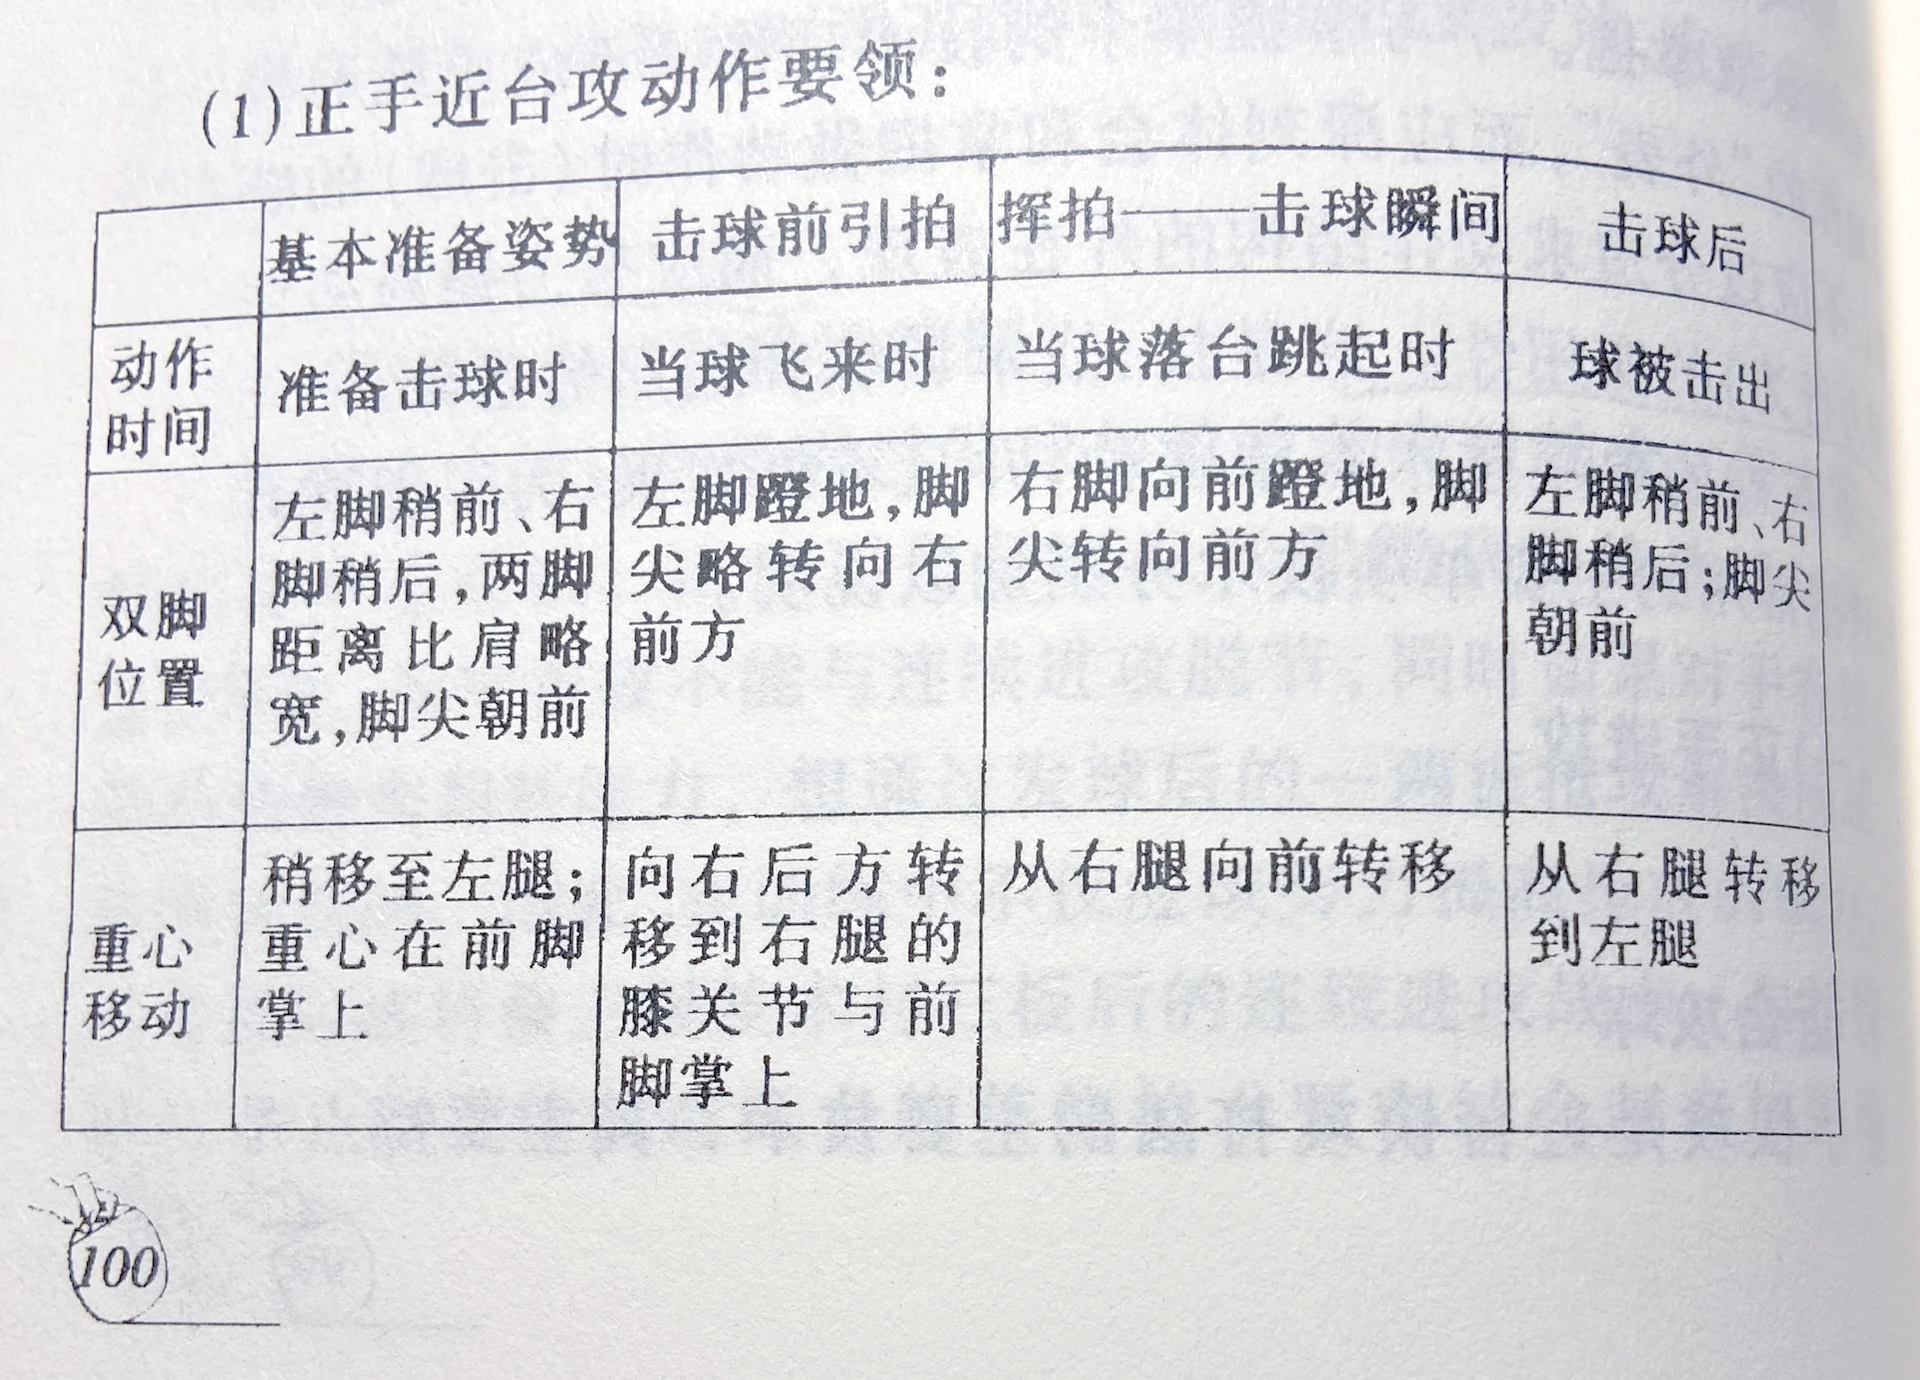 (1)正手近台攻动作要领:
基本准备姿势
击球前引拍
挥拍——击球瞬间
击球后
动作
时间
准备击球时
当球飞来时
当球落台跳起时
球被击出
双脚
位置
左脚稍前、右
脚稍后,两脚
距离比肩略
宽,脚尖朝前
左脚蹬地,脚
尖略转向右
前方
右脚向前蹬地,脚
尖转向前方
左脚稍前、右
脚稍后;脚尖
朝前
重心
移动
稍移至左腿;
重心在前脚
掌上
向右后方转
移到右腿的
膝关节与前
脚掌上
从右腿向前转移
从右腿转移
到左腿
100